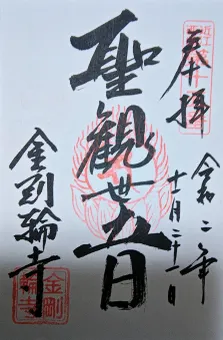 奉拝
令和二年
十一月二十一日
聖観世音
金剛輪寺
金剛
輪寺